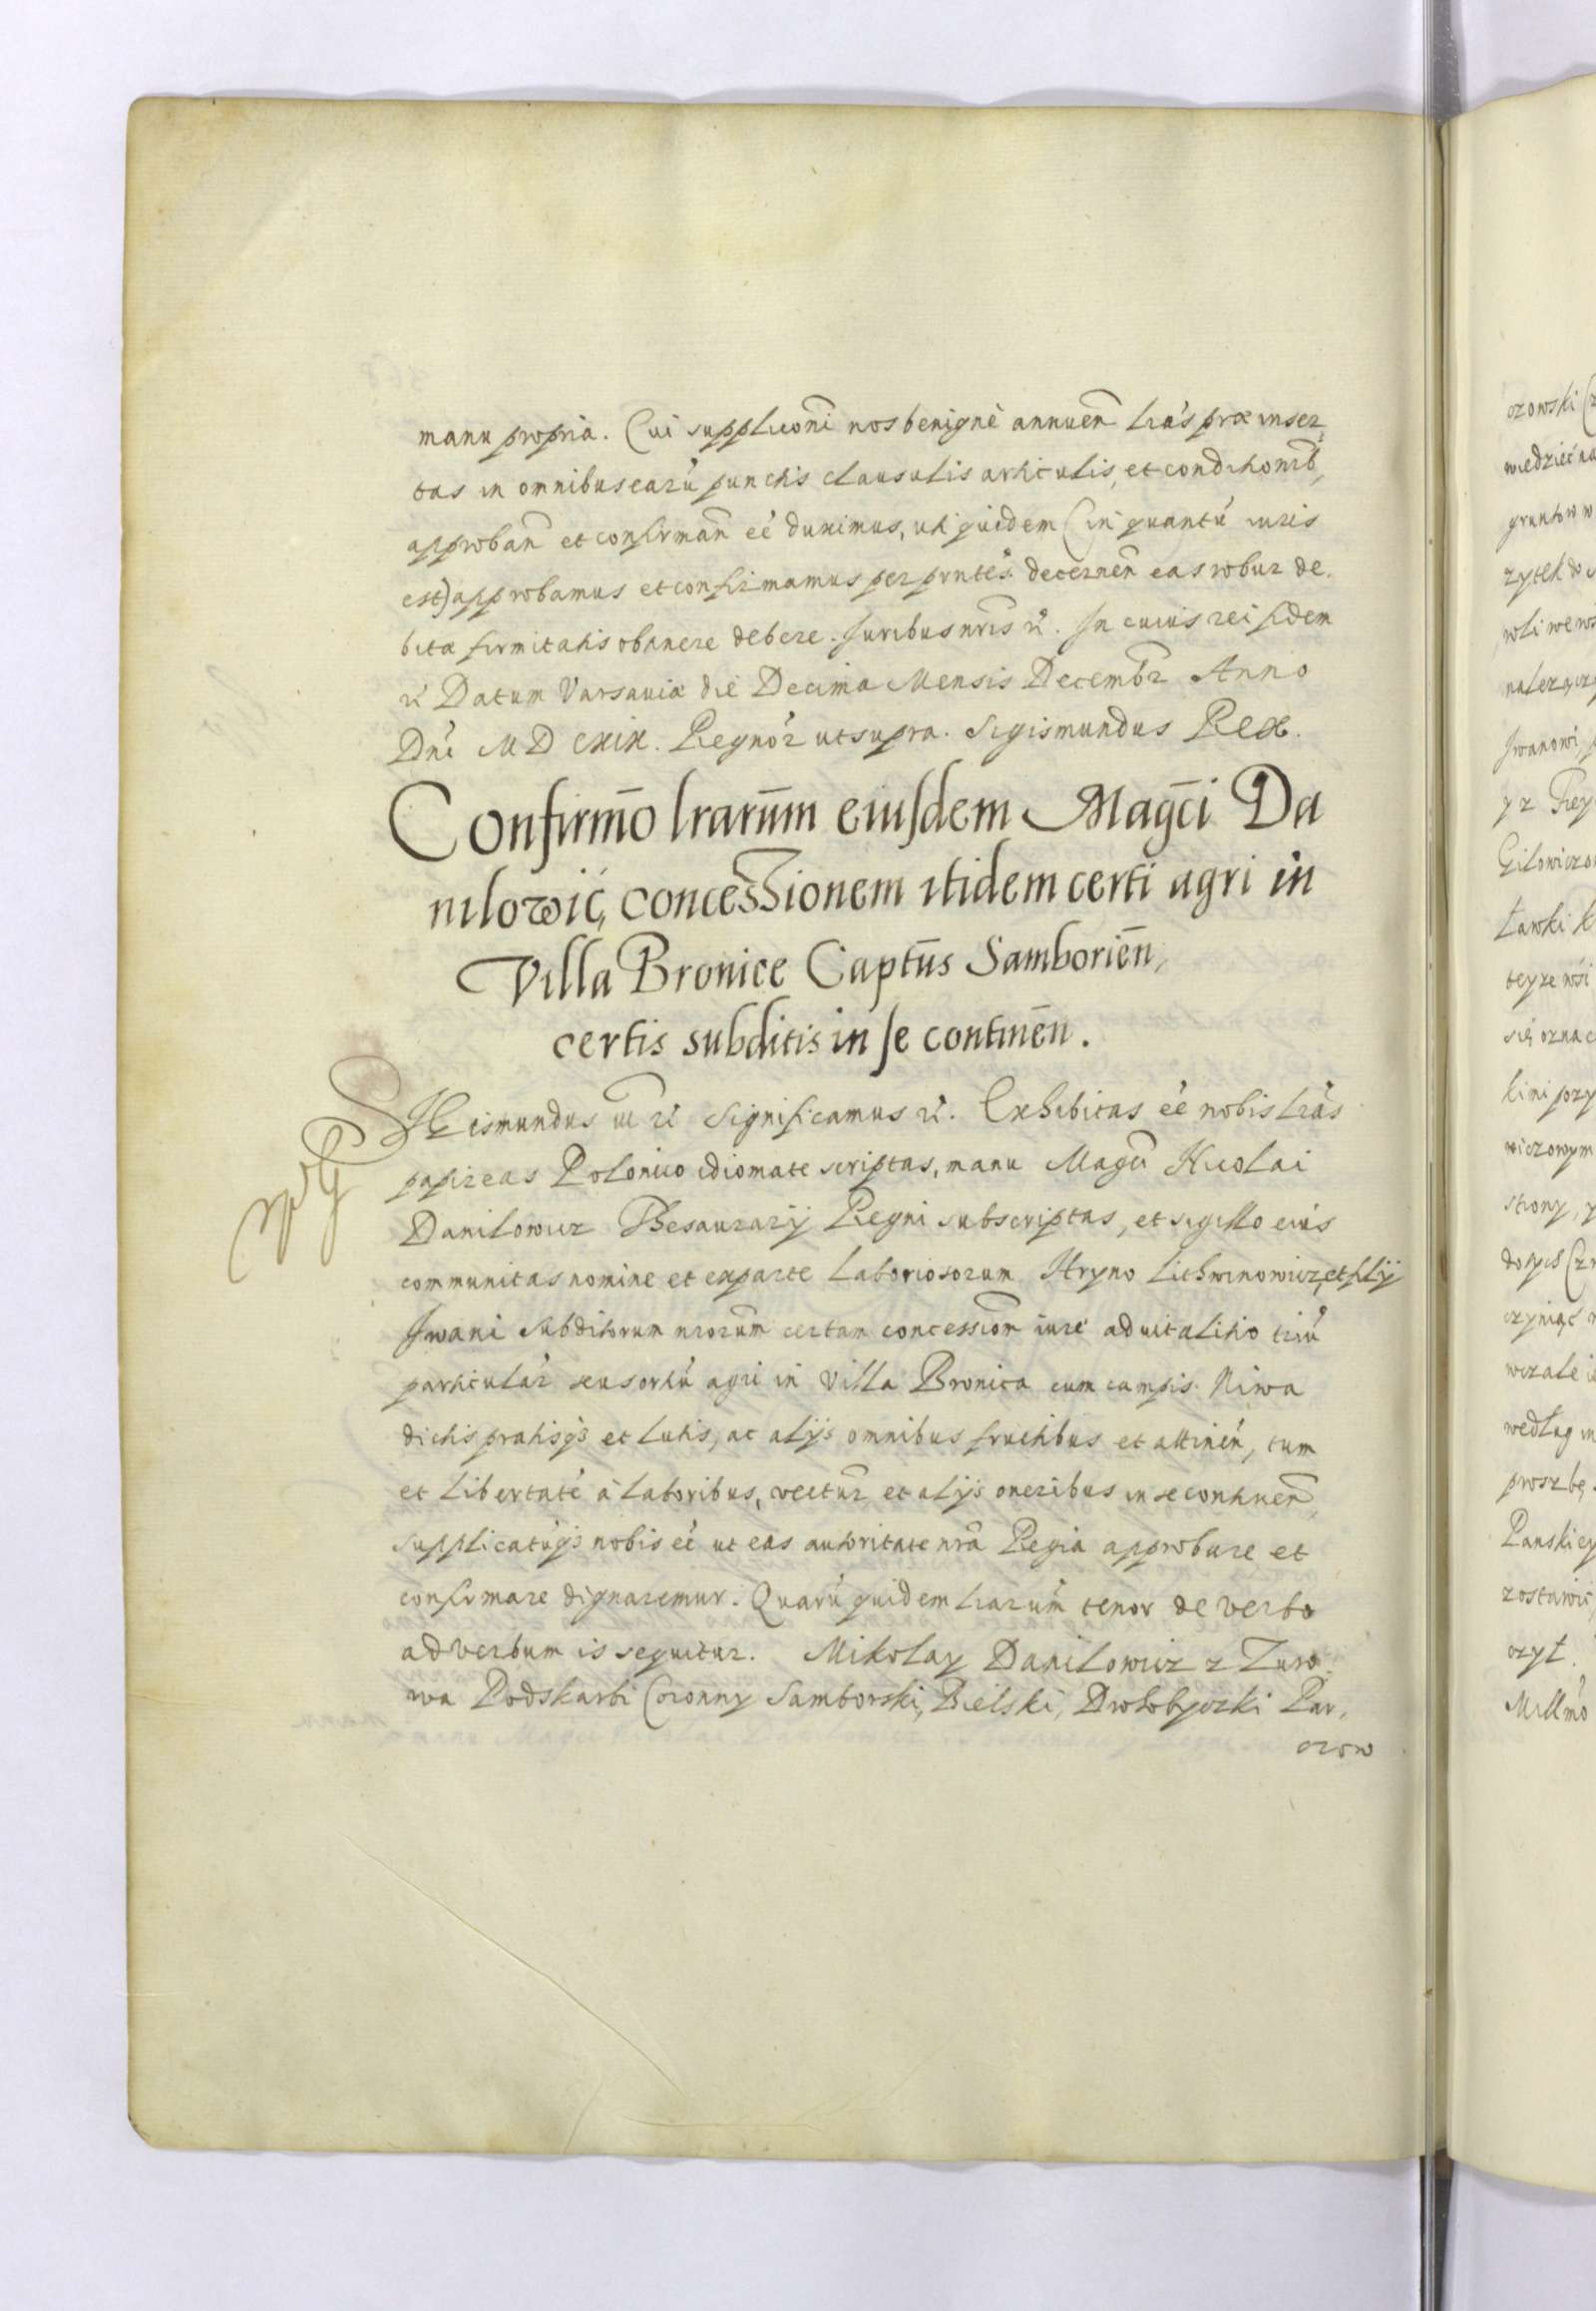 manu propria. Cui supplicōni nos benignè annuen̄ lrás præinser,
tas in omnibus earū punctis clausulis articulis, et conditionib,
approban̄ et confirman̄ eé duximus, uti quidem (in quantū iuris
est) approbamus et confirmamus per prntés decernen̄ eas robur de.
bitæ firmitatis obtinere debere. Juribus nrīs rć. In cuius rei fidem
rć Datum Varsauiæ die Decima Mensis Decembr Anno
Dnī M D CXIX. Regnór ut supra. Sigismundus Rex.
Confirmō lrarūm eiusdem Magc̄i Da
nilowić, concessionem itidem certi agri in
Villa Bronice Captūs Samborien̄,
certis subditis in se continen̄.
SIGismundus III rć Significamus rć. Exhibitas eé nobis lrás
papireas Polonico idiomate scriptas, manu Magci Nicolai
Danilowicz Thesaurarij Regni subscriptas, et sigillo eiús
communitas nomine et ex parte Laboriosorum Hryno Lithwinowicz, et filij
Jwani Subditorum nrorūm certam concessiom̄ iure aduitalitio triū
particulár seu sortiū agri in Villa Bronica cum campis Niwa
dictis pratisqs et lutis, ac alijs omnibus fructibus et attinén, tum
et Libertaté à laboribus, vectur̄ et alijs oneribus in se continen̄,
supplicatūqs nobis eé ut eas authoritate nrā Regia approbare et
confirmare dignaremur. Quarū quidem lrarūm tenor de verbo
ad verbum is sequitur. Mikolay Danilowicz z Zuro
wa Podskarbi Coronny Samborski, Bielski, Drohobyczki Par,
czow
ozowski
wiedzieć
gruntow w
zytek do
woli we
należący
Jwanowi,
y z
Gilowiczo
Ławki
teyze wsi
się
kimi przy
wiczowym
strony,
czyniąć
wczale
według
prozbę
Panskiey
zostawić,
czył.